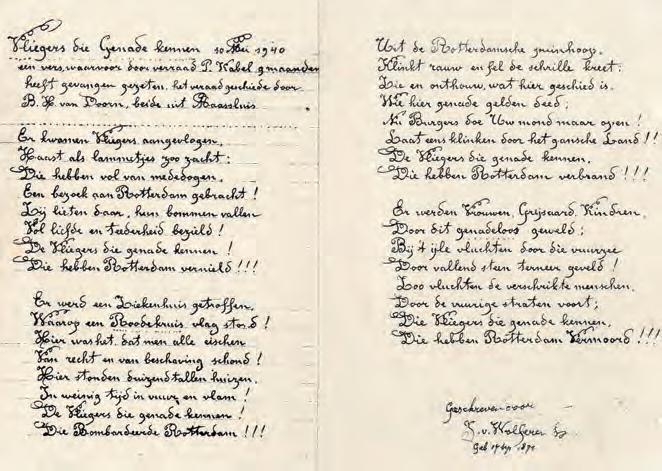 Vliegers die Genade kennen 10 Mei 1940
een vers, waarvoor door verraad P. Wabel 9 maanden
heeft gevangen gezeten, het verraad geschiede door
B. H. van Doorn, beide uit Maassluis
Er kwamen Vliegers aangevlogen,
Haast als lammetjes zoo zacht;
Die hebben vol van mededogen,
Een bezoek aan Rotterdam gebracht!
Zij lieten daar, hun bommen vallen
Vol liefde en teederheid bezield!
De Vliegers die genade kennen!
Die hebben Rotterdam vernield!!!
Er werd een Ziekenhuis getroffen,
Waarop een Roodekruis vlag stond!
Hier was het, dat men alle eischen
Van recht en van beschaving schond!
Hier stonden duizendtallen huizen,
In weinig tijd in vuur en vlam!
De Vliegers die genade kennen!
Die Bombardeerde Rotterdam!!!
Uit de Rotterdamsche puinhoop,
Klinkt rauw en fel de schrille kreet:
Zie en onthouw, wat hier geschied is.
Wie hier genade gelden deed;
Nu Burgers doe Uw mond maar open!
Laat eens klinken door het gansche Land!!!
De Vliegers die genade kennen,
Die hebben Rotterdam verbrand!!!
Er werden Vrouwen, Grijsaard, Kindren,
Door dit genadeloos geweld;
Bij 't ijle vluchten door die vuurzee
Door vallend steen terneer geveld!
Zoo vluchten de verschrikte menschen,
Door de vuurige straten voort;
Die Vliegers die genade kennen,
Die hebben Rotterdam Vermoord!!!
Geschreven door
J. v. Wolferen
Geb